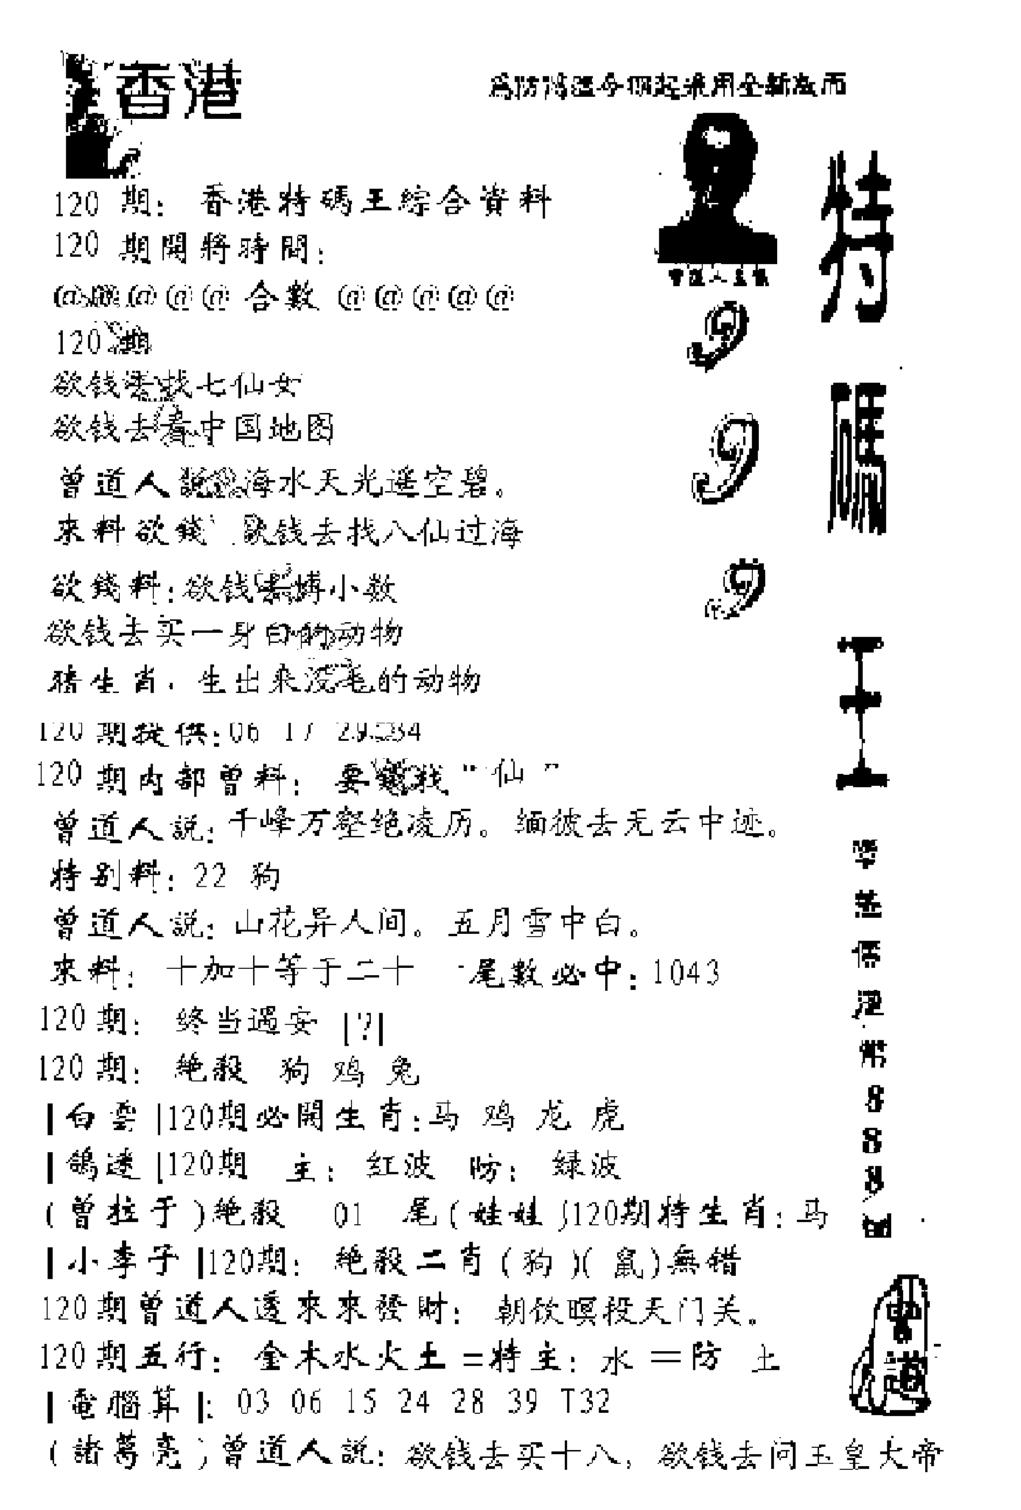 香港
120 期: 香港特碼王綜合資料
120 期開將時間:
@@@@@ 合數 @@@@@
120 期
欲钱去找七仙女
欲钱去看中国地图
曾道人說 海水天光遥空碧。
來料欲錢 欲钱去找八仙过海
欲錢料:欲钱 博小数
欲钱去买一身白的动物
猜生肖: 生出来没毛的动物
120 期提供:06 17 29 34
120 期内部曾料: 要钱找"仙"
曾道人説: 千峰万壑绝凌历。缅彼去无云中迹。
特别料: 22 狗
曾道人説: 山花异人间。五月雪中白。
來料: 十加十等于二十 尾數必中: 1043
120 期: 终当遇安 |?|
120 期: 绝殺 狗 鸡 兔
|白雲|120期必開生肖:马 鸡 龙 虎
|鴿迷|120期 主: 红波 防: 緑波
(曾拉于)絶殺 01 尾(娃娃)120期特生肖:马
|小李子|120期: 绝殺二肖(狗)(鼠)無错
120期曾道人透來來發財: 朝饮暝投天门关。
120期五行: 金木水火土=特主: 水=防 土
|電腦算|: 03 06 15 24 28 39 T32
(諸葛亮)曾道人説: 欲钱去买十八, 欲钱去问玉皇大帝
今期起采用全新版面
曾道人
9
9
9
特
碼
王
888
曾道